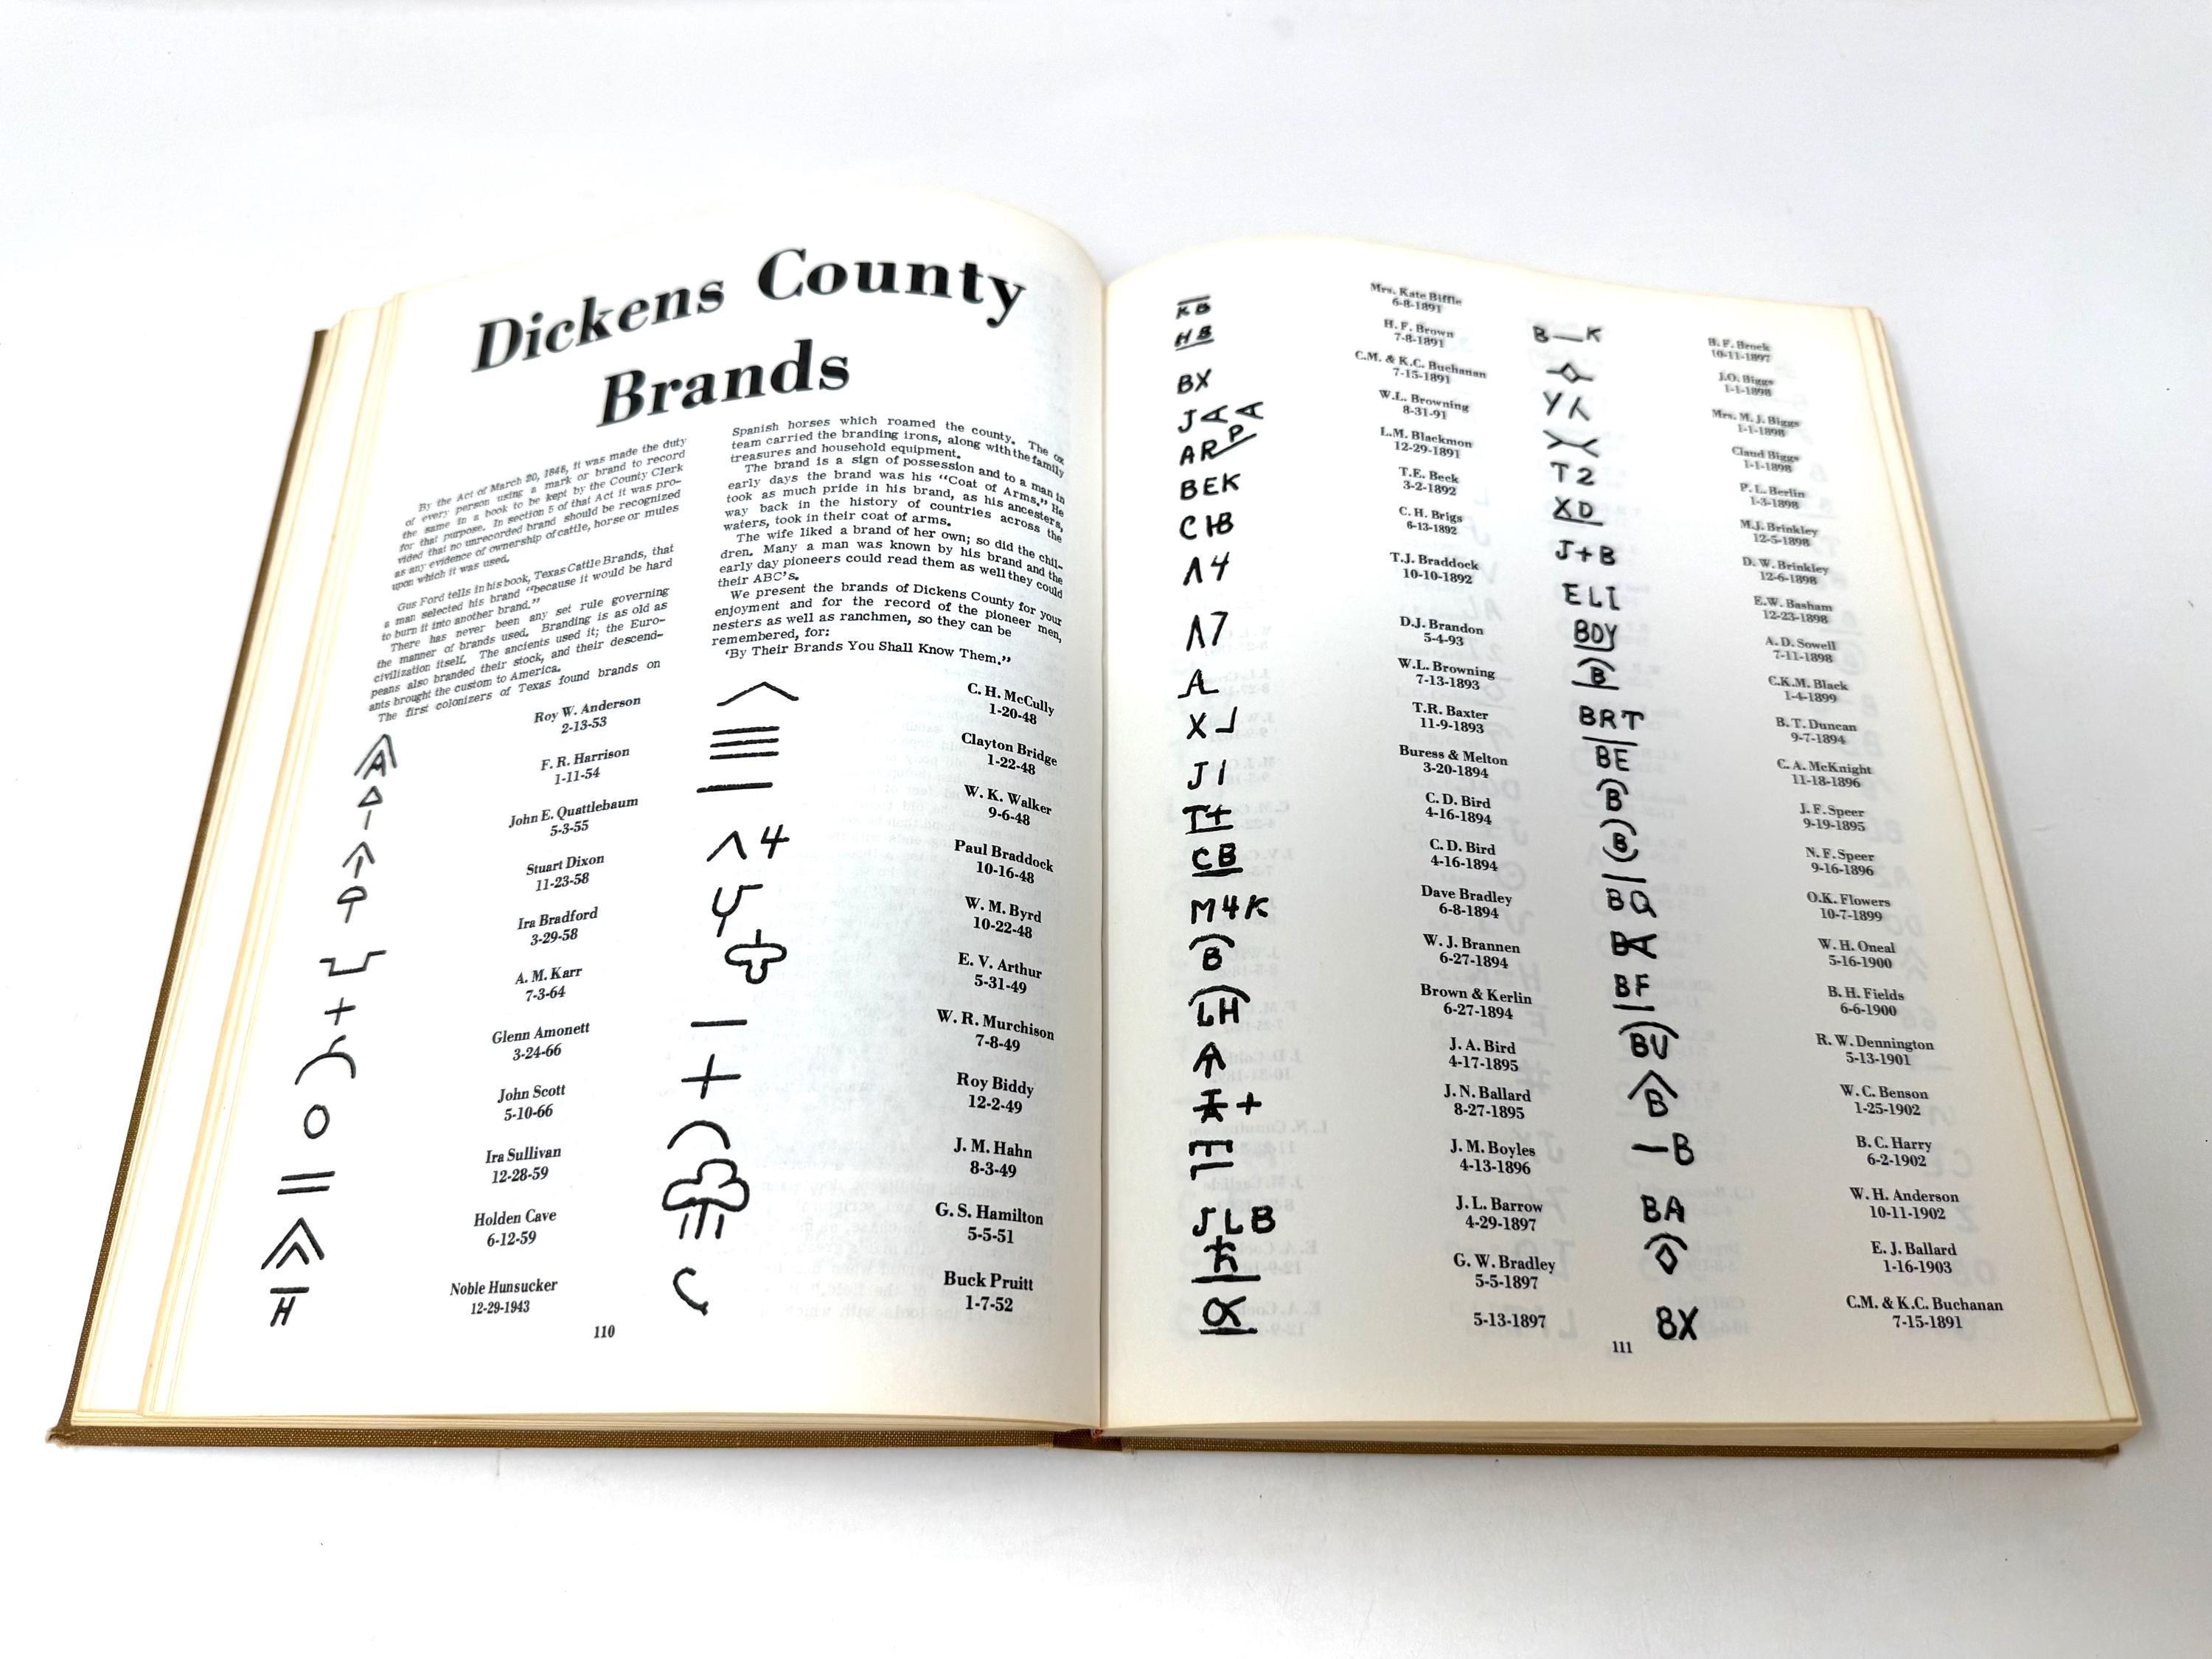 Dickens County
Brands
By the Act of March 20, 1848, it was made the duty
of every person using a mark or brand to record
the same in a book to be kept by the County Clerk
for that purpose. In section 5 of that Act it was pro-
vided that no unrecorded brand should be recognized
as any evidence of ownership of cattle, horse or mules
upon which it was used.
Gus Ford tells in his book, Texas Cattle Brands, that
a man selected his brand "because it would be hard
to burn it into another brand."
There has never been any set rule governing
the manner of brands used. Branding is as old as
civilization itself. The ancients used it; the Euro-
peans also branded their stock, and their descend-
ants brought the custom to America.
The first colonizers of Texas found brands on
Spanish horses which roamed the county. The ox
team carried the branding irons, along with the family
treasures and household equipment.
The brand is a sign of possession and to a man in
early days the brand was his "Coat of Arms." He
took as much pride in his brand, as his ancesters,
way back in the history of countries across the
waters, took in their coat of arms.
The wife liked a brand of her own; so did the chil-
dren. Many a man was known by his brand and the
early day pioneers could read them as well they could
their ABC's.
We present the brands of Dickens County for your
enjoyment and for the record of the pioneer men,
nesters as well as ranchmen, so they can be
remembered, for:
'By Their Brands You Shall Know Them."
Roy W. Anderson
2-13-53
A
F. R. Harrison
1-11-54
John E. Quattlebaum
5-3-55
Stuart Dixon
11-23-58
Ira Bradford
3-29-58
A. M. Karr
7-3-64
+
Glenn Amonett
3-24-66
John Scott
5-10-66
O
Ira Sullivan
12-28-59
Holden Cave
6-12-59
H
Noble Hunsucker
12-29-1943
C. H. McCully
1-20-48
Clayton Bridge
1-22-48
W. K. Walker
9-6-48
Λ4
Paul Braddock
10-16-48
W. M. Byrd
10-22-48
E. V. Arthur
5-31-49
W. R. Murchison
7-8-49
+
Roy Biddy
12-2-49
J. M. Hahn
8-3-49
G. S. Hamilton
5-5-51
Buck Pruitt
1-7-52
110
KB
Mrs. Kate Biffle
6-8-1891
HB
H. F. Brown
7-8-1891
BX
C.M. & K.C. Buchanan
7-15-1891
W.L. Browning
8-31-91
ARP
L.M. Blackmon
12-29-1891
BEK
T.E. Beck
3-2-1892
CHB
C. H. Brigs
6-13-1892
Λ4
T.J. Braddock
10-10-1892
Λ7
D.J. Brandon
5-4-93
W.L. Browning
7-13-1893
T.R. Baxter
11-9-1893
J1
Buress & Melton
3-20-1894
T±
C. D. Bird
4-16-1894
CB
C. D. Bird
4-16-1894
M4K
Dave Bradley
6-8-1894
B
W. J. Brannen
6-27-1894
LH
Brown & Kerlin
6-27-1894
J. A. Bird
4-17-1895
J. N. Ballard
8-27-1895
J. M. Boyles
4-13-1896
JLB
J. L. Barrow
4-29-1897
G. W. Bradley
5-5-1897
5-13-1897
B—K
B. F. Brock
10-11-1897
J.O. Biggs
1-1-1898
Mrs. M. J. Biggs
1-1-1898
Claud Biggs
1-1-1898
T2
P. L. Berlin
1-3-1898
XD
M.J. Brinkley
12-5-1898
J+B
D. W. Brinkley
12-6-1898
ELI
E.W. Basham
12-23-1898
BOY
A. D. Sowell
7-11-1898
B
C.K.M. Black
1-4-1899
BRT
B. T. Duncan
9-7-1894
BE
C. A. McKnight
11-18-1896
B
J. F. Speer
9-19-1895
B
N. F. Speer
9-16-1896
BQ
O.K. Flowers
10-7-1899
W. H. Oneal
5-16-1900
BF
B. H. Fields
6-6-1900
BU
R. W. Dennington
5-13-1901
B
W. C. Benson
1-25-1902
—B
B. C. Harry
6-2-1902
BA
W. H. Anderson
10-11-1902
E. J. Ballard
1-16-1903
BX
C.M. & K.C. Buchanan
7-15-1891
111